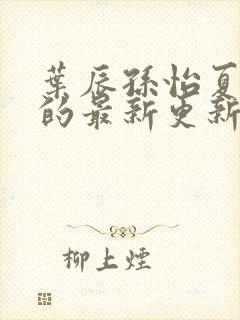 葉辰孫怡夏
的最新更新
柳上煙